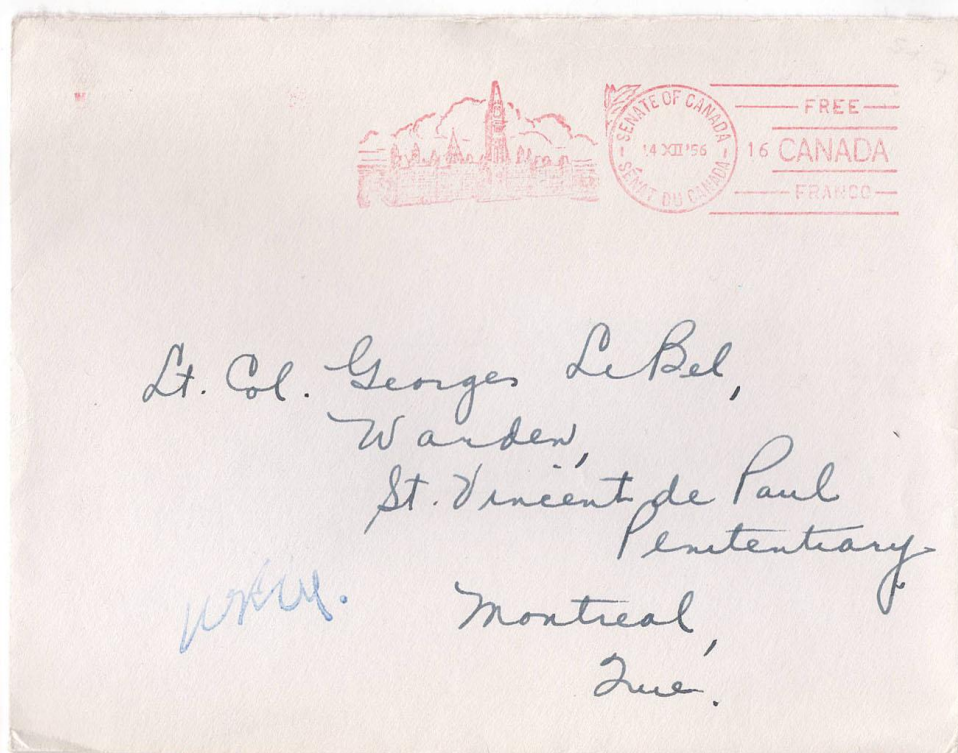 SENATE OF CANADA
14 XII '56
SÉNAT DU CANADA
FREE
16 CANADA
FRANCO
Lt. Col. Georges LeBel,
Warden,
St. Vincent de Paul
Penitentiary,
Montreal,
Que.